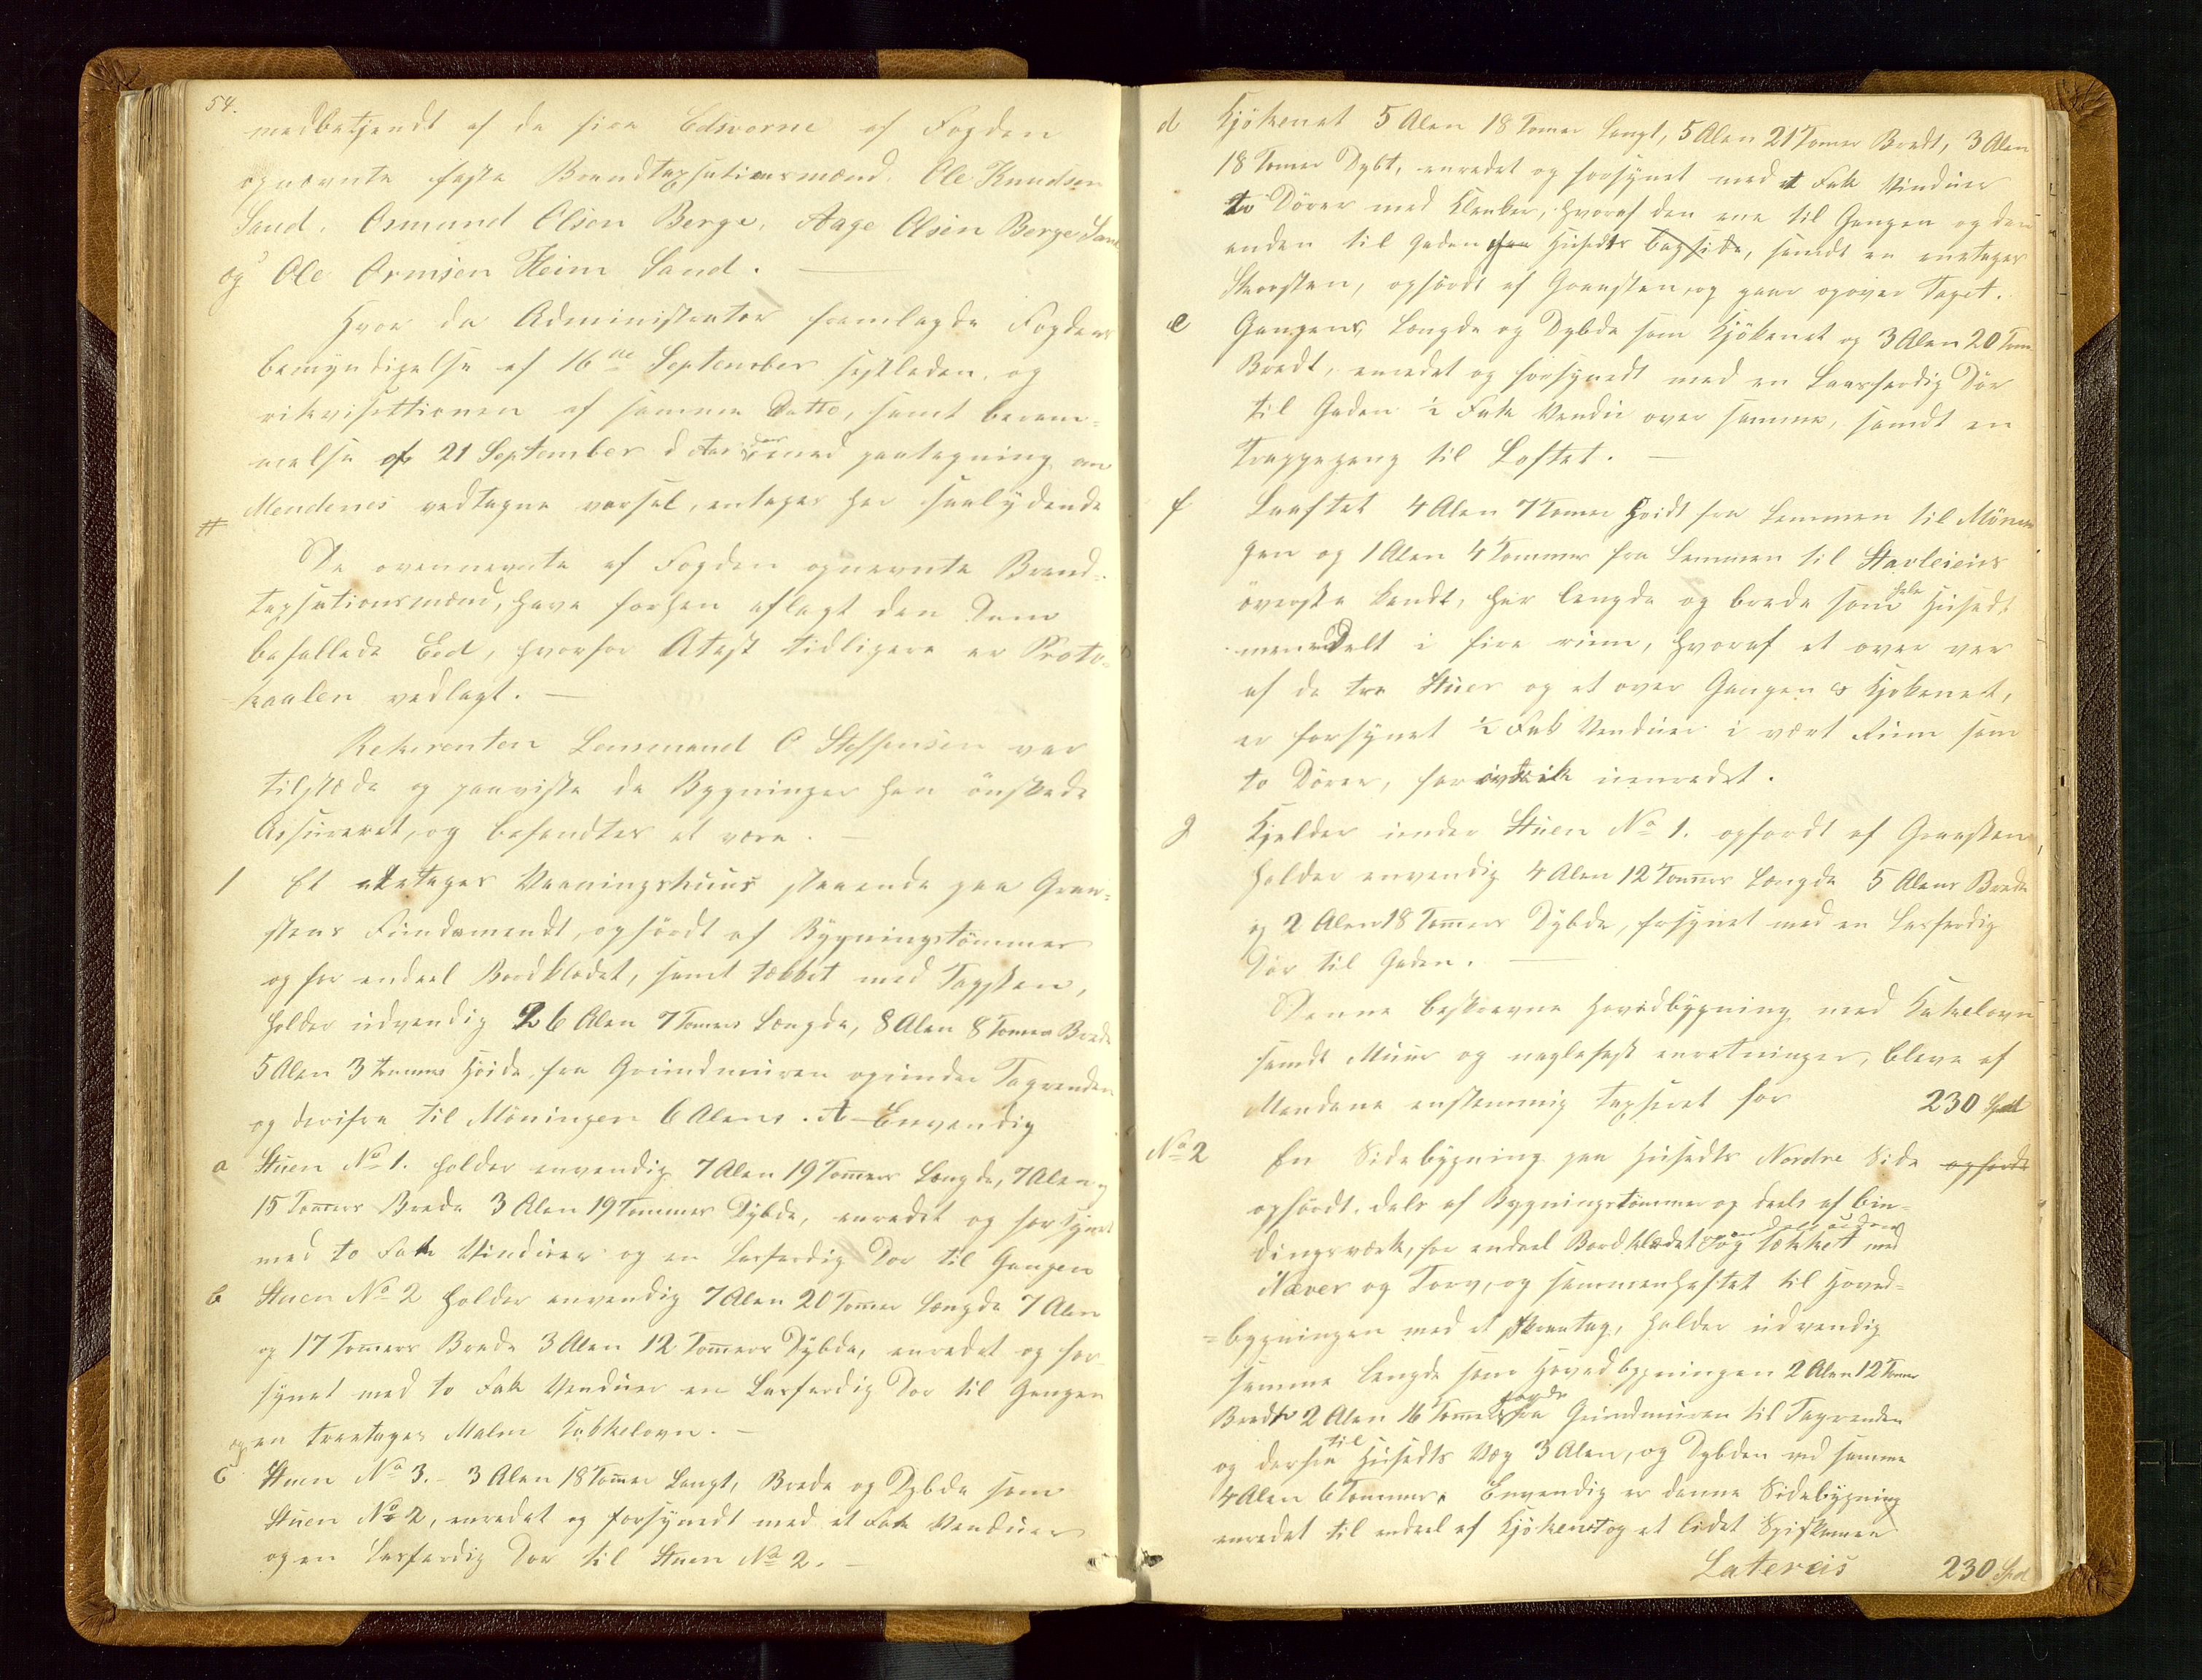 54.
medbetjendt af de fire Edsvorne af Fogden
opnævnte faste Brandtaxsationsmænd. Ole Knudsen
Sand, Osmund Olsen Berge, Aage Olsen Berge, Sand
og Ole Ormsen Heim Sand. —
Hvor da Administrator fremlagde Fogdens
bemyndigelse af 16de September sistleden, og
rekvisittionen af samme Datto, samt beram-
melse af 21 September d Aar med paategning om
Mendenes vedtagne varsel, entages her saalydende
#
De ovennevnte af Fogden opnevnte Brand-
taxsationsmænd, have forhen aflagt den Dem
befallede Eed, hvorfor Atest tidligere er Proto-
kaalen vedlagt. —
Rekvirenten Lensmand O Steffensen var
tilstede og paaviste de Bygninger han önskede
Assureret, og befandtes at være. —
1 Et etetages Vaaningshuus staaende paa Graa-
stens Fundamendt, opfördt af Bygningstömmer
og for endeel Bordklædet, samt tækket med Tagsten,
holder udvendig 26 Alen 7 Tommers Længde, 8 Alen 8 Tommer Brede
5 Alen 3 tommers Höide, fra Grundmuren opunder Tagrenden
og derifra til Möningen 6 Alens. A — Envendig
a Stuen No 1. holder envendig 7 Alen 19 Tommers Længde, 7 Alen og
15 Tommers Brede 3 Alen 19 Tommer Dybde, enredet og forsynet
med to Fak Vinduer og en Lasferdig Dör til Gangen
b Stuen No 2 holder envendig 7 Alen 20 Tommer Længde 7 Alen
og 17 Tommers Brede 3 Alen 12 Tommers Dybde, enredet og for-
synet med to Fak Venduer en Lasferdig Dör til Gangen
og en treetages Malm Kakkelovn. —
c Stuen No 3. - 3 Alen 18 Tommer Langt, Brede og Dybde som
Stuen No 2, enredet og forsynedt med et Fak Venduer
og en Lasferdig Dör til Stuen No 2. —
d Kjökenet 5 Alen 18 Tommer Langt, 5 Alen 21 Tommer Bredt, 3 Alen
18 Tommer Dybt, enredet og forsynet med et Fak Vinduer
to Dörer med Klenker, hvoraf den ene til Gangen og den
anden til Gaden Husedts bagside, samdt en enetages
Skorsten, opfördt af Graasten, og gaar opover Taget.
e Gangens, Længde og Dybde som Kjökenet og 3 Alen 20 Tom
Bredt, enredet og forsynedt med en Laasferdig Dör
til Gaden ½ Fak Vendu over samme, samdt en
Trappegang til Loftet. —
f Laaftet 4 Alen 7 Tommer Höidt fra Lemmen til Mönen
gen og 1 Alen 4 Tommer fra Lemmen til Stavleiens
överste kandt, Har lengde og brede som hele Husedt
men delt i fire rum, hvoraf et over ver
af de tre Stuer og et over Gangen & Kjökenet,
er forsynet ½ Fak Venduer i vært Rum som
to Dörer, for uenredet.
g Kjelder under Stuen No 1. opfördt af Graasten,
holder envendig 4 Alen 12 Tommer Længde 5 Alens Brede
og 2 Alen 18 Tommers Dybde, forsynet med en Lasferdig
Dör til Gaden. —
Denne beskrevne Hovedbygning med Kakelovn
samdt Muur og naglefast enretninger, bleve af
Mendene enstemmig taxseret for 230 Spd
No 2 En Sidebygning paa Husedts Nordre Side opfördt
opfördt. dels af Bygningstömmer og deels af bin-
dingsværk, for endeel Bordklædet og tækket med
Næver og Torv, og sammenheftet til Hoved-
=bygningen med et Skraatag, holder udvendig
samme Lengde som Hovedbygningen 2 Alen 12 Tommer
Bredt 2 Alen 16 Tommer fra Grundmuren til Tagrenden
og derfra til Husedts Væg 3 Alen, og Dybden ved samme
4 Alen 6 Tommer. Envendig er denne Sidebygning
enredet til endeel af Kjökenet og et lidet Spiskammer
Latereis 230 Spd